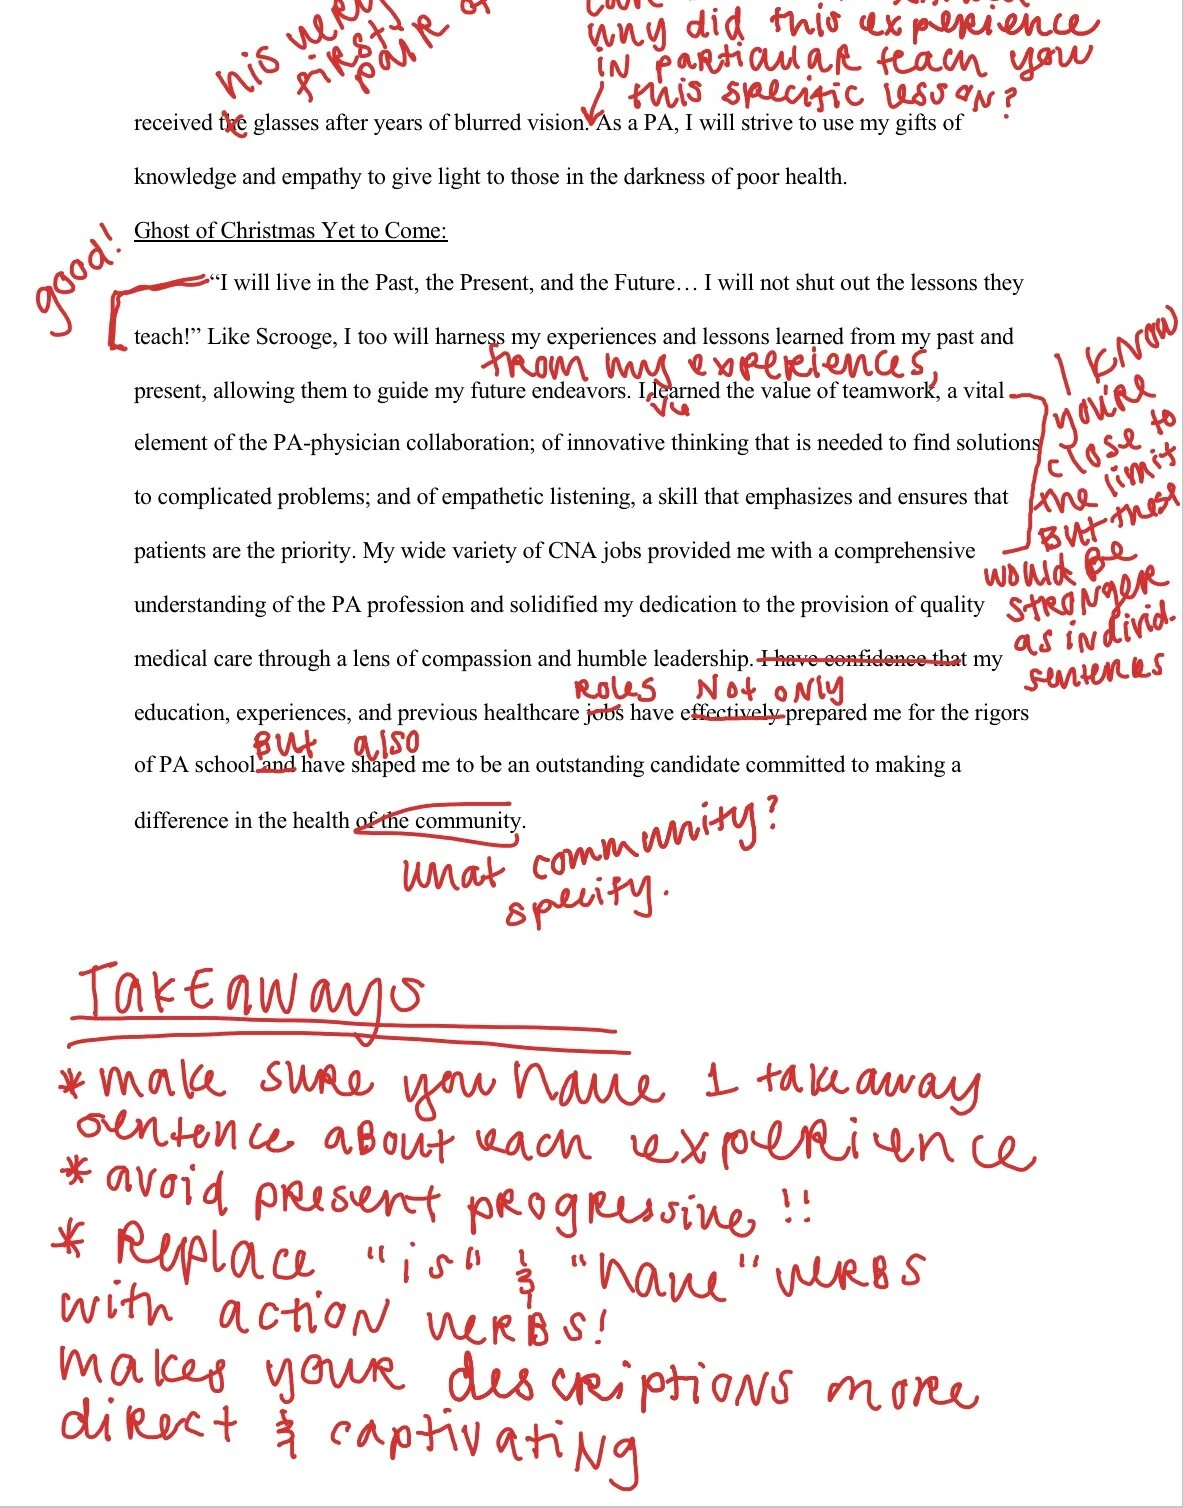 his very
first
pair of
why did this experience
in particular teach you
this specific lesson?
received the glasses after years of blurred vision. As a PA, I will strive to use my gifts of
knowledge and empathy to give light to those in the darkness of poor health.
good!
Ghost of Christmas Yet to Come:
“I will live in the Past, the Present, and the Future… I will not shut out the lessons they
teach!” Like Scrooge, I too will harness my experiences and lessons learned from my past and
from my experiences,
present, allowing them to guide my future endeavors. I learned the value of teamwork, a vital
've
element of the PA-physician collaboration; of innovative thinking that is needed to find solutions
to complicated problems; and of empathetic listening, a skill that emphasizes and ensures that
patients are the priority. My wide variety of CNA jobs provided me with a comprehensive
understanding of the PA profession and solidified my dedication to the provision of quality
medical care through a lens of compassion and humble leadership. I have confidence that my
I know
you're
close to
the limit
But these
would be
stronger
as individ.
sentences
roles not only
education, experiences, and previous healthcare jobs have effectively prepared me for the rigors
But also
of PA school and have shaped me to be an outstanding candidate committed to making a
difference in the health of the community.
what community?
specify.
Takeaways
* make sure you have 1 takeaway
sentence about each experience
* avoid present progressive!!
* Replace "is" & "have" verbs
with action verbs!
makes your descriptions more
direct & captivating